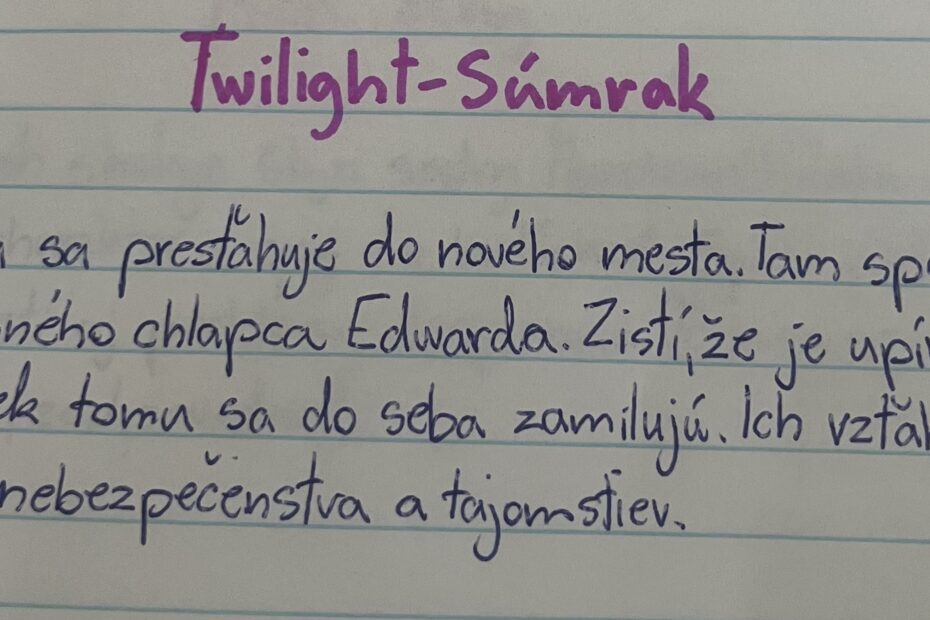 Twilight-Súmrak
sa presťahuje do nového mesta. Tam
chlapca Edwarda. Zistí, že je
tomu sa do seba zamilujú. Ich
nebezpečenstva a tajomstiev.